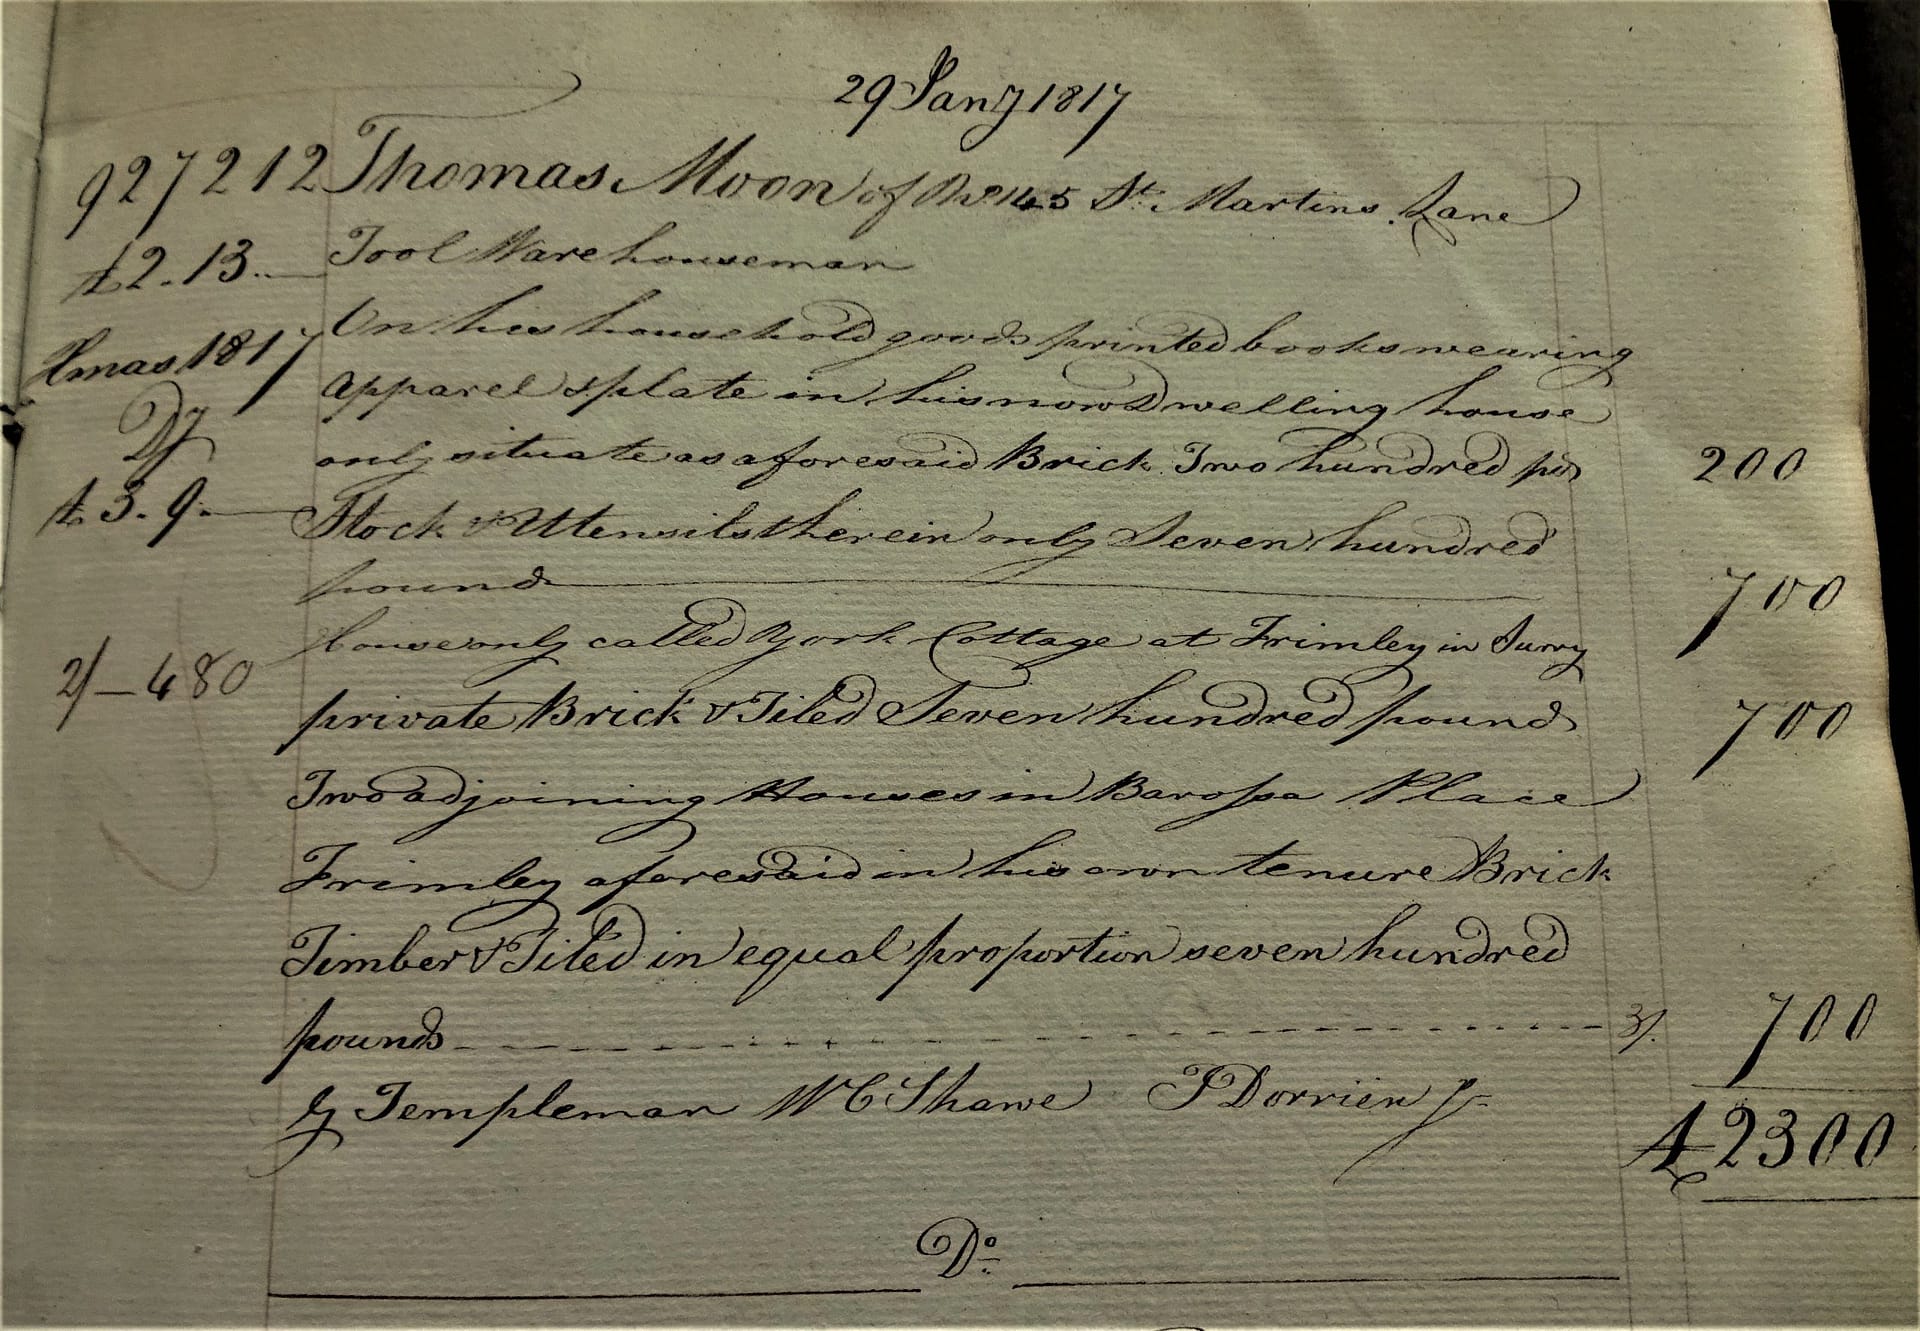 29 Jany 1817
927212 Thomas Moon of No 145 St. Martins Lane
£2.13.— Tool Warehouseman
On his household goods printed books wearing
Xmas 1817
apparel & plate in his now Dwelling house
Dy
only situate as aforesaid Brick. Two hundred pds 200
£3.9.— Stock & Utensils therein only Seven hundred
pound 700
House only called York Cottage at Frimley in Surry
2/— 480
private Brick & Tiled Seven hundred pound 700
Two adjoining Houses in Barossa Place
Frimley aforesaid in his own tenure Brick
Timber & Tiled in equal proportion seven hundred
pounds 3/. 700
G Templeman W C Shawe J Dorrien Jr £2300
Do.